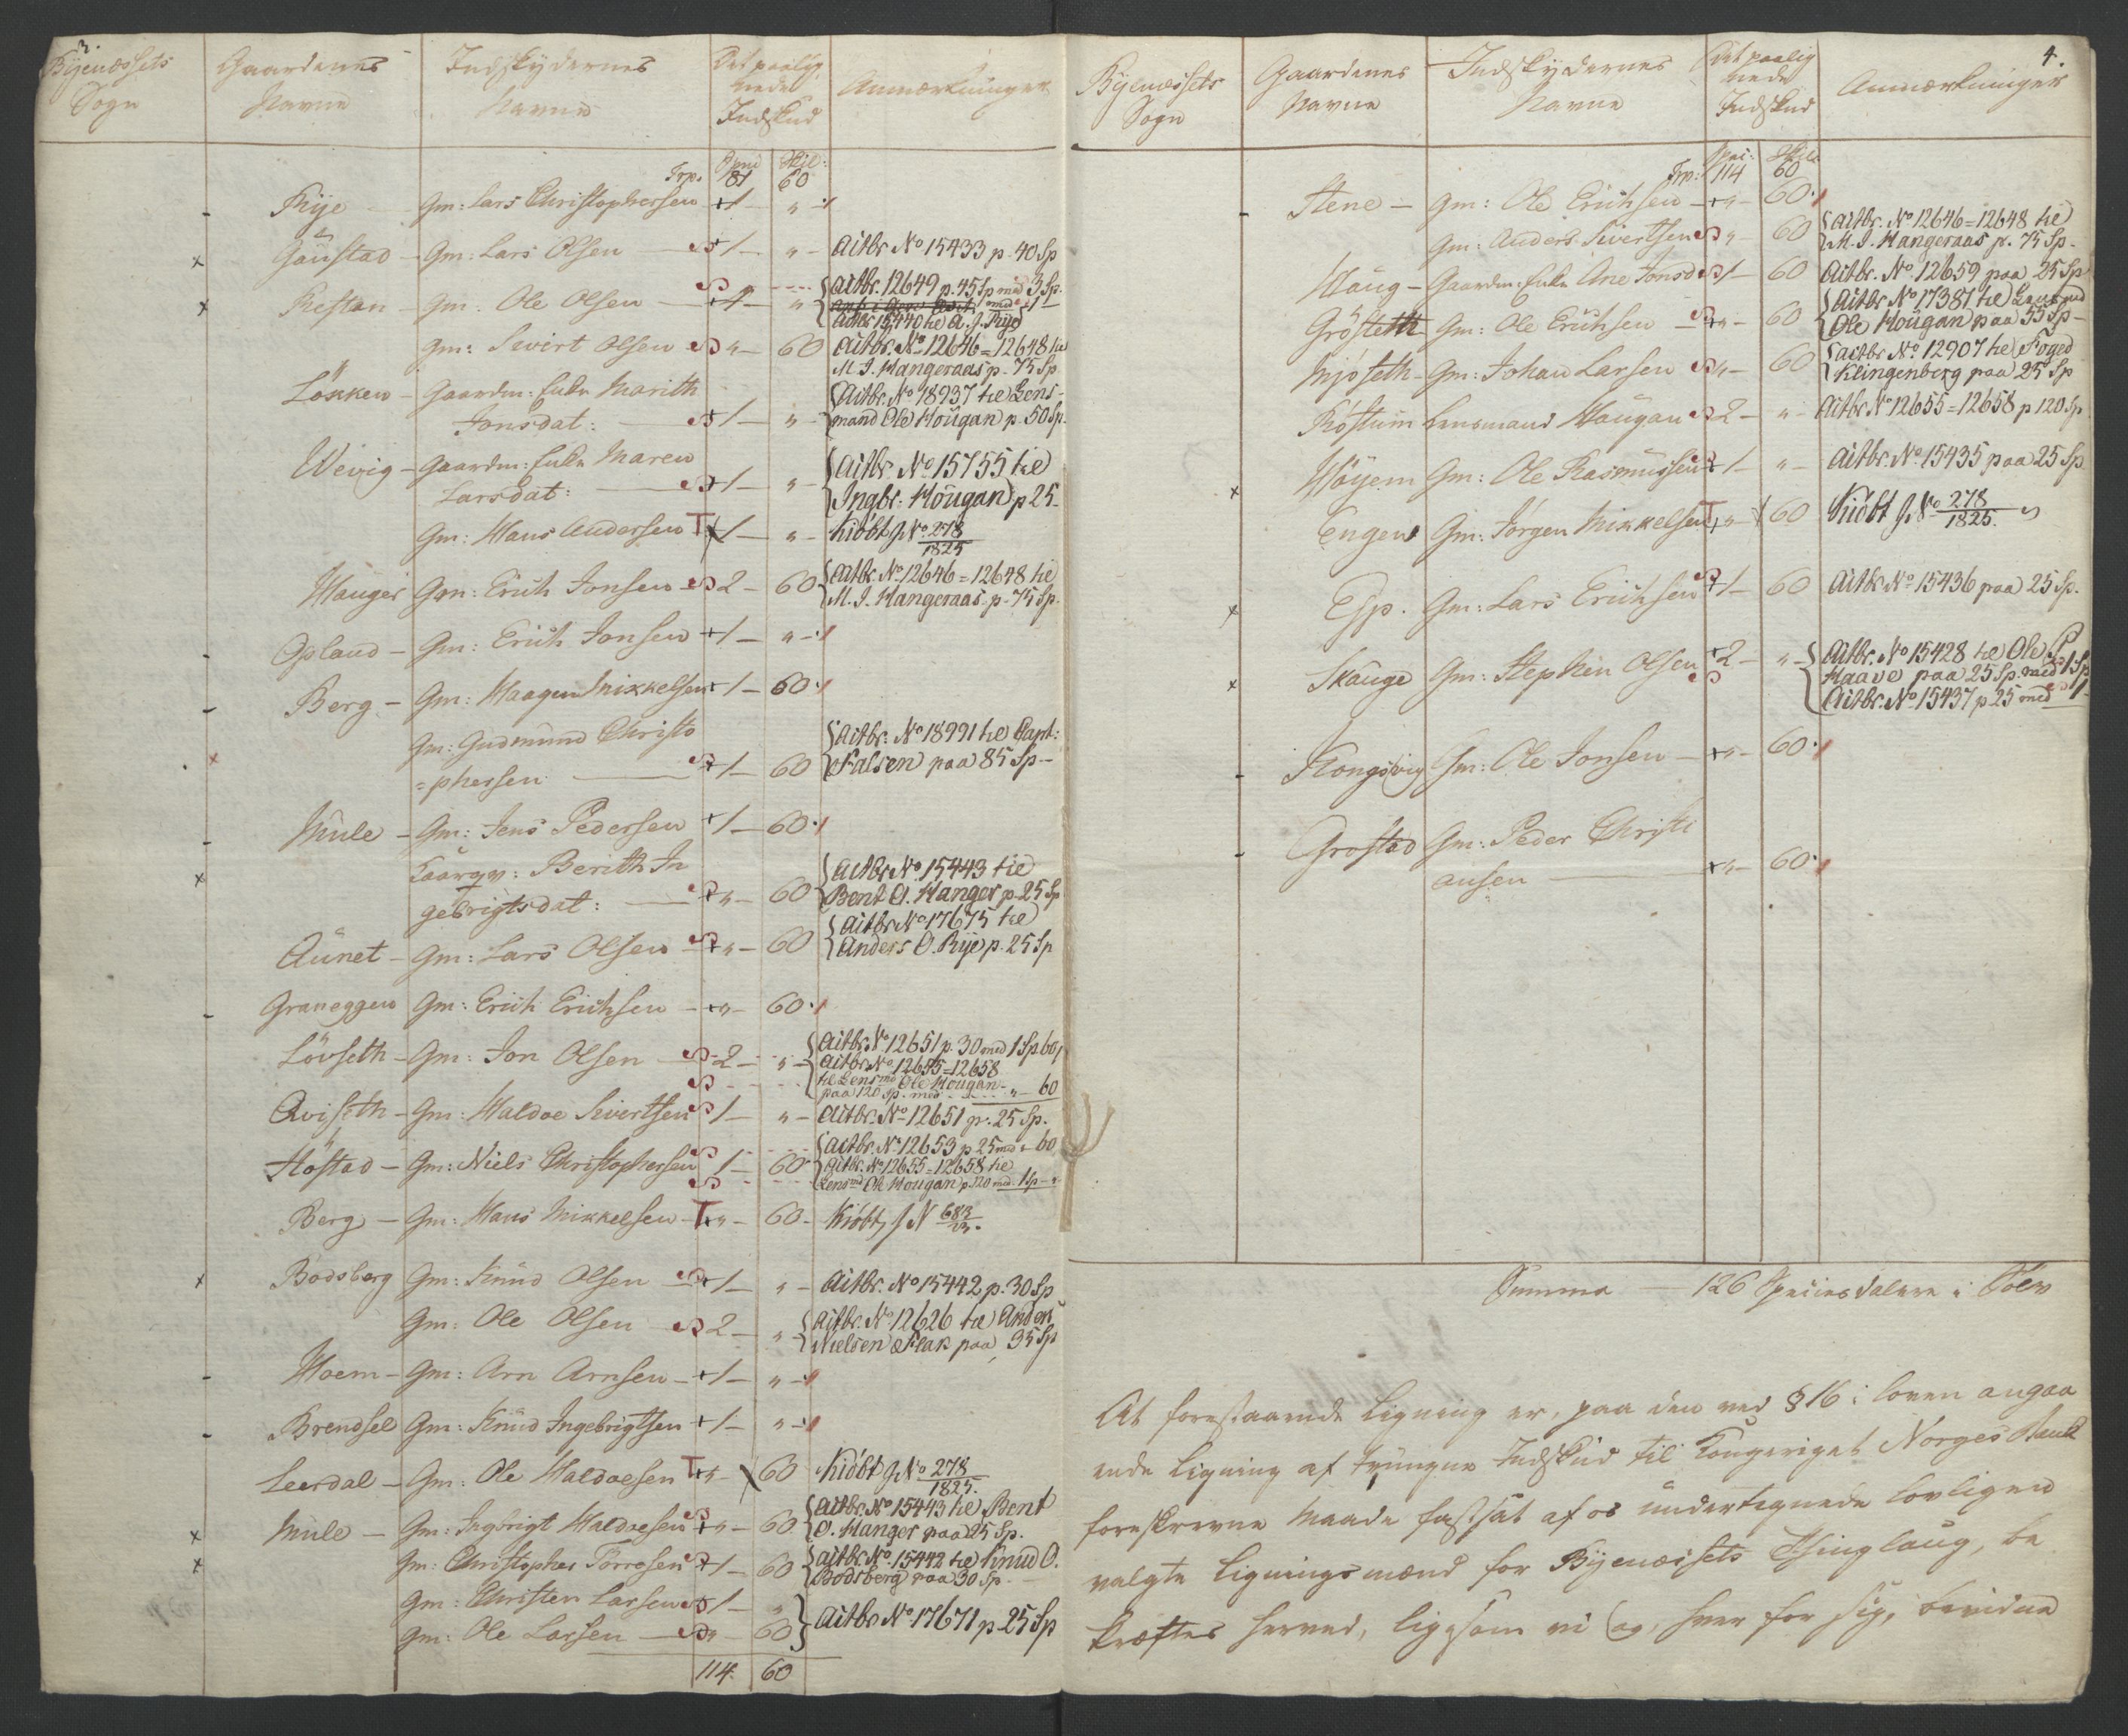 3.
Byenæssets
Sogn
Gaardenes
Navne
Indskydernes
Navne
Det paalig
nede
Indskud
Anmærkninger
Trp. 81 60
Rye Gm: Lars Christophersen +1 — " -
Gaustad — Gm: Lars Olsen — 1 — " — Actbr No 15433 p. 40 Sp
Restan — Gm: Ole Olsen — " { Actbr. 12649 p. 45 Sp med 3 Sp.
Actbr 15440 til A. J. Rye
Gm: Sivert Olsen " — 60 Actbr. No 12646 = 12648 til
M. J. Hangeraas p. 75 Sp
Löxken — Gaardm: Enke Marith
Jonsdat: — 1 — " — { Actbr. No 18937 til Lens-
mand Ole Hougan p. 50 Sp.
Wevig — Gaardm: Enke Maren
Larsdat: — +1 — " — { Actbr. No 15755 til
Ingbr. Hougan p 25-
Gm: Hans Andersen T 1 — " — Kiöbt J No 278
1825
Hanger Gm: Erich Jonsen 2 — 60 { Actbr. No 12646 = 12648 til
M. J. Hangeraas p. 75 Sp.
Opland — Gm: Erich Jonsen +1 — " -
Berg — Gm: Haagen Mikkelsen +1 — 60
Gm: Gudmund Christo
=phersen — +1 — 60 { Actbr. No 18991 til Capt:
Falsen paa 85 Sp—
Mule — Gm: Jens Pedersen +1 — 60
Berith In
gebrigtsdat: — + " — 60 { Actbr No 15443 til
Bent O. Hanger p. 25 Sp
Aunet — Gm: Lars Olsen + " — 60 { Actbr No 17675 til
Anders O. Rye p. 25 Sp
Graneggen Gm: Erich Erichsen — + " — 60
Lövseth — Gm: Jon Olsen — 2 — " — { Actbr. No 12651 p. 30 med 1 Sp 60
Actbr. No 12655 = 12658
til Lensmd Ole Hougan
paa 120 Sp. med — " — 60
Qvisth — Gm: Haldoe Sivertsen 1 — " — Actbr. No 12651 p. 25 Sp.
Höstad — Gm: Niels Christophersen 1 — 60 { Actbr. No 12653 p 25 med " 60
Actbr. No 12655 = 12658 til
Lensmd Ole Hougan p. 120 md. 1 Sp — "
Berg — Gm: Hans Mikkelsen T + " — 60 — Kiöbt J N 683
23.
Bodsberg Gm: Knud Olsen — +1 — " — Actbr. No 15442 p. 30 Sp
Gm: Ole Olsen — 2 — " { Actbr. No 12626 til Anders
Nielsen Flak paa 35 Sp
Hoem — Gm: Arn Arnsen — +1 — " -
Brendsel Gm: Knud Ingebrigtsen +1 — " -
Leerdal — Gm: Ole Haldoesen T + " — 60 Kiöbt J No 278
1825.
Mule — Gm: Ingbrigt Haldoesen + " — 60 { Actbr. No 15443 til Bent
O. Hanger paa 25 Sp.
Gm: Christopher Torresen +1 — 60 { Actbr. No 15442 til Knud O.
Bodsberg paa 30 Sp.
Gm: Christen Larsen 1 — "
Gm: Ole Larsen — " — 60 } Actbr No 17671 p. 25 Sp
114. 60
4.
Byenæssets
Sogn
Gaardenes
Navne
Indskydernes
Navne
Det paalig
nede
Indskud
Anmærkninger
Trp: 114 60
Stene — Gm: Ole Erichsen — + " — 60
Gm: Anders Sivertsen " — 60 { Actbr. No 12646 = 12648 til
M. J. Hangeraas p. 75 Sp.
Haug — Gaardm: Enke Ane Jonsd 1 — 60 Actbr. No 12659 paa 25 Sp
Grösteth Gm: Ole Erichsen — + " — 60 { Actbr No 17381 til Lensmd
Ole Hougan paa 55 Sp—
Mjöseth — Gm: Johan Larsen " — 60 { Actbr No 12907 til Foged
Klingenberg paa 25 Sp
Röstum Lensmand Haugan 2 — " — Actbr No 12655 = 12658 p 120 Sp
Höyem Gm: Ole Rasmussen 1 — " — Actbr. No 15435 paa 25 Sp
Engen Gm: Jörgen Mikkelsen T " — 60 Kiöbt J No 278
1825.
Esp. Gm: Lars Erichsen +1 — 60 Actbr No 15436 paa 25 Sp.
Skauge Gm: Stephen Olsen +2 — " — { Actbr. No 15428 til Ole P.
Haave paa 25 Sp. med 1 Sp
Actbr. No 15437 p 25 med 1 -
Kongsvig Gm: Ole Jonsen — + " — 60
Grostad Gm: Peder Christi
ansen — + " — 60
Summa — 126 Speciesdalere i Sölv
At forestaaende Ligning er, paa den ved § 16 i Loven angaa
ende Ligning af tvungne Indskud til Kongeriget Norges Bank
foreskrevne Maade fastsat af os undertegnede lovligen
valgte Ligningsmænd for Byenæssets Thinglaug, be
kræftes herved, ligesom vi og, hver for sig, bevidne